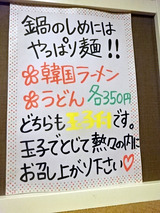 鍋のしめには
やっぱり麺!!
韓国ラーメン
うどん 各350円
どちらも玉子付です。
玉子でとじて熱々の内に
お召し上がり下さい♡